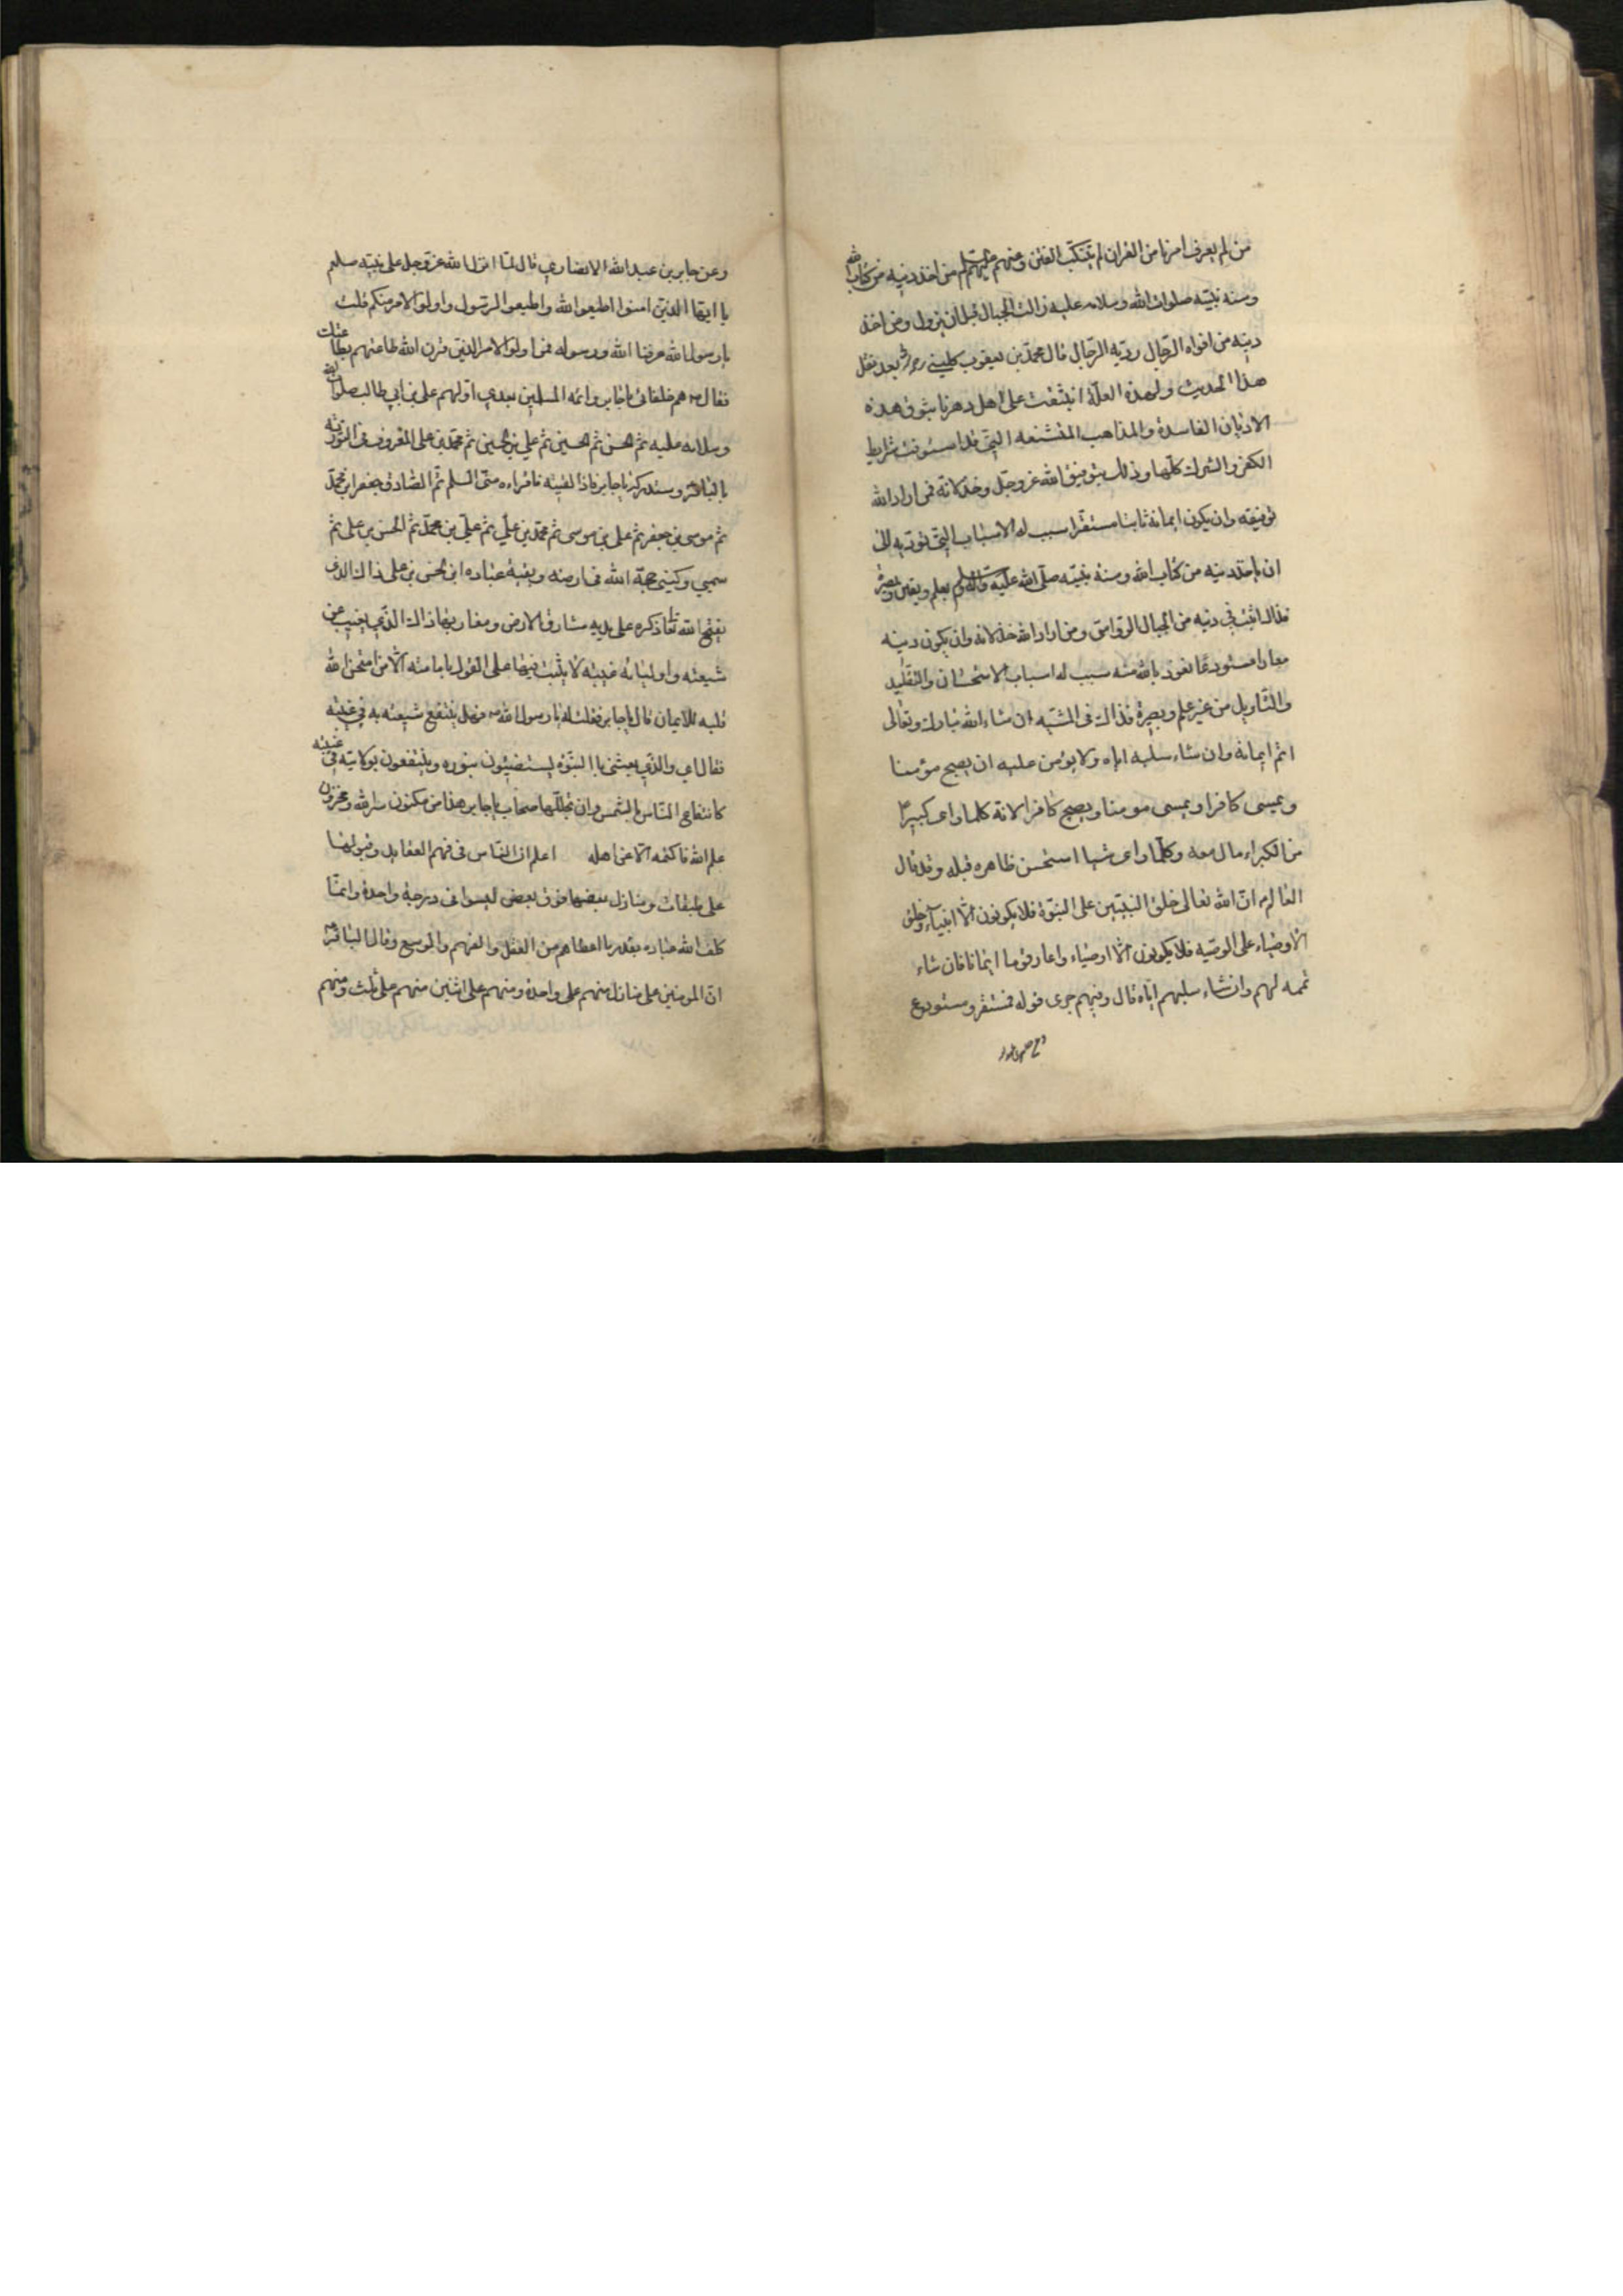 من لم يعرف امرنا من القران لم يتنكب الفتن وعنهم عليهم السلم من اخذ دينه من كتاب الله
وسنة نبيّه صلوات الله وسلامه عليه زالت الجبال قبل ان يزول ومن اخذ
دينه من افواه الرّجال ردّته الرّجال قال محمّد بن يعقوب كلينى بعد نقل
هذا الحديث ولهذه العلّة انبثقت على اهل دهرنا بثوق هذه
الاديان الفاسدة والمذاهب المتشنعه التى قد استوفت شرايط
الكفر والشرك كلّها وذلك بتوفيق الله عزوجلّ وخذلانه فمن اراد الله
توفيقه وان يكون ايمانه ثابتا مستقرا سبب له الاسباب التى تودّيه الى
ان ياخذ دينه من كتاب الله وسنة نبيّه صلّى الله عليه واله وسلم بعلم ويقين وبصيرة
فذاك اثبت في دينه من الجبال الرواسى ومن اراد الله خذلانه وان يكون دينه
معارا مستودعًا نعوذ بالله منه سبب له اسباب الاستحسان والتقليد
والتّاويل من غير علم وبصيرة فذاك فى المشيّه ان شاء الله تبارك وتعالى
اتم ايمانه وان شاء سلبه اياه ولا يؤمن عليه ان يصبح مؤمنا
ويمسى كافرا ويمسى مومنا ويصبح كافرا لانه كلما راى كبيرا
من الكبراء مال معه وكلّما راى شيا استحسن ظاهره قبله وقد قال
العالم انّ الله تعالى خلق النبيّين على النبوّة فلا يكونون الّا انبياء وخلق
الاوصياء على الوصيّه فلا يكونون الّا اوصياء واعار قوما ايمانا فان شاء
تممه لهم وان شاء سلبهم ايّاه قال وفيهم جرى قوله فمستقر ومستودع
وعن جابر بن عبد الله الانصاري قال لمّا انزل الله عزوجل على نبيّه صلعم
يا ايها الذين امنوا اطيعوا الله واطيعوا الرّسول واولو الامر منكم قلت
يا رسول الله عرفنا الله ورسوله فمن اولو الامر الذين قرن الله طاعتهم بطاعتك
فقال هم خلفائى يا جابر وائمه المسلمين بعدي اولهم على بن ابي طالب صلوات الله
وسلامه عليه ثم الحسن ثم الحسين ثم علي بن الحسين ثم محمّد بن على المعروف فى التورية
بالباقر وستدركه يا جابر فاذا لقيته فاقراءه منّى السلم ثم الصّادق جعفر ابن محمّد
ثم موسى بن جعفر ثم على بن موسى ثم محمّد بن علي ثم على بن محمّد ثم الحسن بن على ثم
سميي وكنيى حجّة الله فى ارضه وبقية عباده ابن الحسن بن على ذاك الذى
يفتح الله تعا ذكره على يديه مشارق الارض ومغاربها ذاك الذي يغيب عن
شيعته واوليائه غيبة لا يثبت فيها على القول بامامته الّا من امتحن الله
قلبه للايمان قال جابر فقلت له يا رسول الله فهل ينتفع شيعته به في غيبته
فقال اي والذي بعثنى بالنبوّة ليستضيئون بنوره وينتفعون بولايته فى غيبته
كانتفاع النّاس بالشمس وان تجلّلها سحاب يا جابر هذا من مكنون سر الله ومخزون
علم الله فاكتمه الّا عن اهله اعلم ان النّاس فى فهم العقايد وقبولها
على طبقات ومنازل بعضها فوق بعض ليسوا فى درجة واحدة وانمّا
كلف الله عباده بقدر ما اعطاهم من العقل والفهم والوسع وقال الباقر
انّ المومنين على منازل منهم على واحدة ومنهم على اثنين منهم على ثلث ومنهم